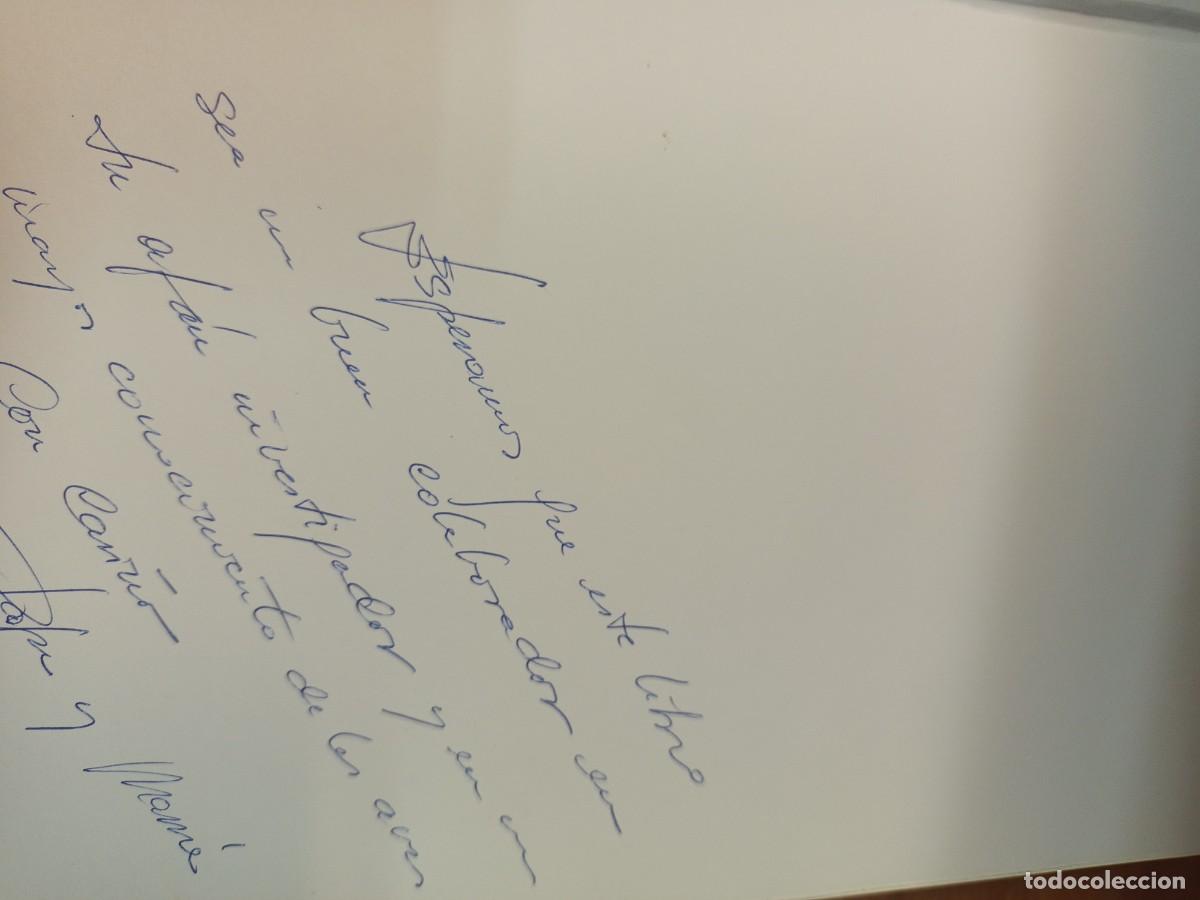 Esperamos que este libro
sea un buen colaborador en
tu afán investigador y en un
mayor conocimiento de las aves
Con cariño
Papá y Mamá
todocoleccion